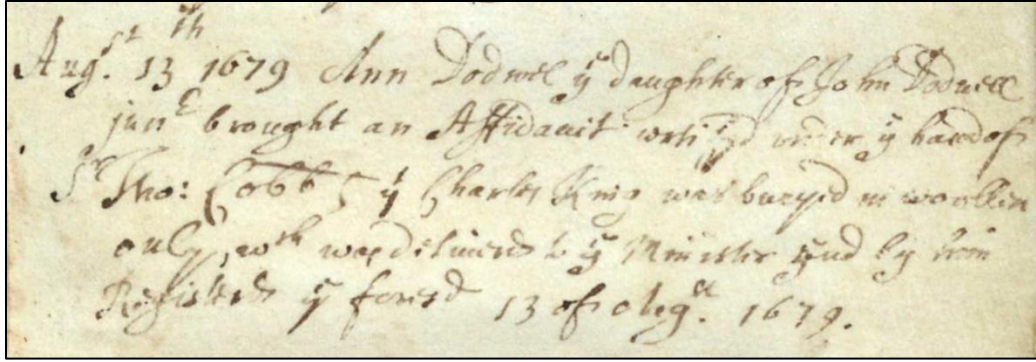 Aug:st 13th 1679 Ann Dodwel ye daughter of John Dodwell
junr brought an Affidavit under ye hand of
Sr Tho: Cobb yt Charles King was buryed in woollen
only, wch was deliuered to ye Minister and by him
Registered ye foresd 13 of Aug:st 1679.